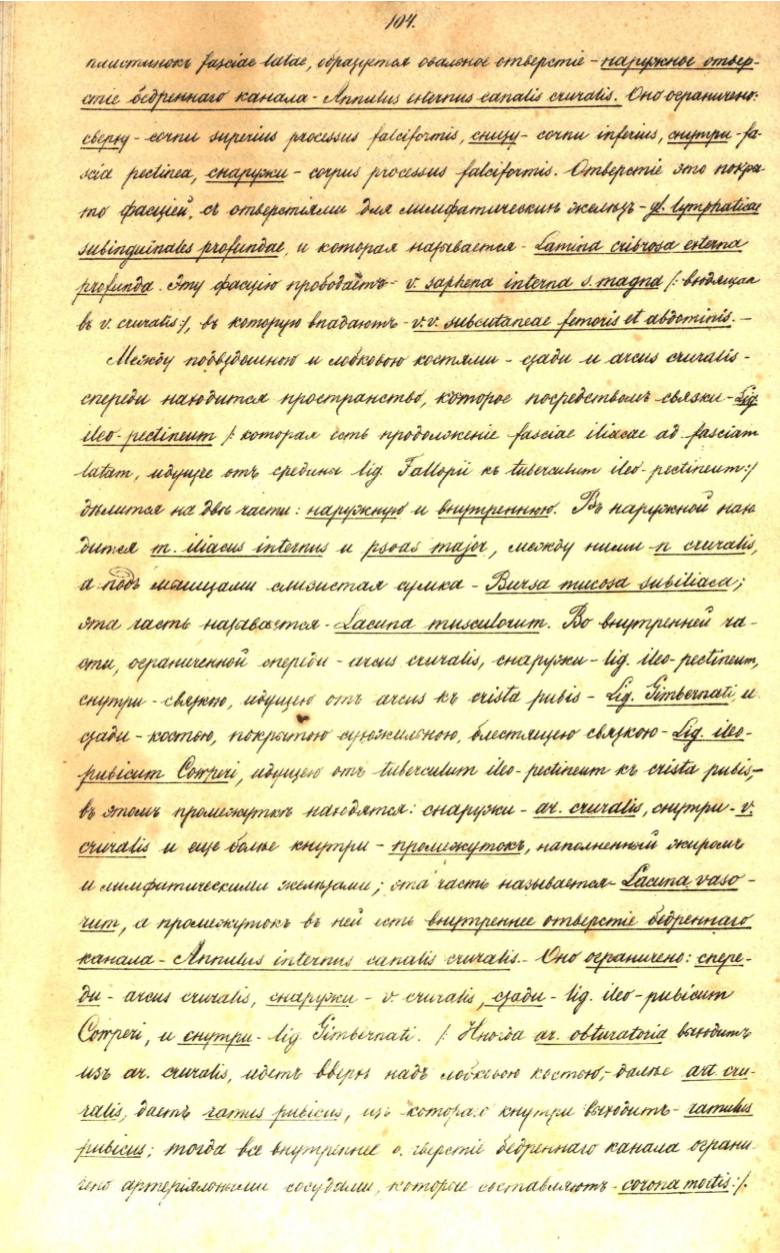 104.
пластинокъ fasciae latae, образуется овальное отверстіе - наружное отвер-
стіе бедреннаго канала - Annulus externus canalis cruralis. Оно ограничено:
сверху - cornu superius processus falciformis, снизу - cornu inferius, снутри - fa-
scia pectinea, снаружи - corpus processus falciformis. Отверстіе это покры-
то фасціей, съ отверстіями для лимфатическихъ железъ - gl. lymphaticae
subinguinales profundae, и которая называется - Lamina cribrosa externa
profunda. Эту фасцію прободаетъ - v. saphena interna s. magna /: входящая
въ v. cruralis :/, въ которую впадаютъ - v.v. subcutaneae femoris et abdominis. -
Между подвздошною и лобковою костями - сзади и arcus cruralis -
спереди находится пространство, которое посредствомъ связки - Lig.
ileo-pectineum /: которая есть продолженіе fasciae iliacae ad fasciam
latam, идущее отъ средины lig. Fallopii къ tuberculum ileo-pectineum :/
дѣлится на двѣ части: наружную и внутреннюю. Въ наружной нахо
дится m. iliacus internus и psoas major, между ними - n cruralis,
а подъ мышцами слизистая сумка - Bursa mucosa subiliaca;
эта часть называется - Lacuna musculorum. Во внутренней ча-
сти, ограниченной спереди - arcus cruralis, снаружи - lig. ileo-pectineum,
снутри - связкою, идущею отъ arcus къ crista pubis - Lig. Gimbernati, и
сзади - костью, покрытою сухожильною, блестящею связкою - Lig. ileo-
pubicum Cooperi, идущею отъ tuberculum ileo-pectineum къ crista pubis, -
въ этомъ промежуткѣ находятся: снаружи - ar. cruralis, снутри - v.
cruralis и еще болѣе кнутри - промежутокъ, наполненный жиромъ
и лимфатическими железами; эта часть называется - Lacuna vaso-
rum, а промежутокъ въ ней есть внутреннее отверстіе бедреннаго
канала - Annulus internus canalis cruralis. - Оно ограничено: спере-
ди - arcus cruralis, снаружи - v. cruralis, сзади - lig. ileo-pubicum
Cooperi, и снутри - lig. Gimbernati. /: Иногда ar. obturatoria выходитъ
изъ ar. cruralis, идетъ вверхъ надъ лобковою костью, - далѣе art. cru-
ralis, даетъ ramus pubicus, изъ котораго кнутри выходитъ - ramulus
pubicus; тогда все внутреннее отверстіе бедреннаго канала ограни-
чено артеріяльными сосудами, которые составляютъ - corona mortis :/.